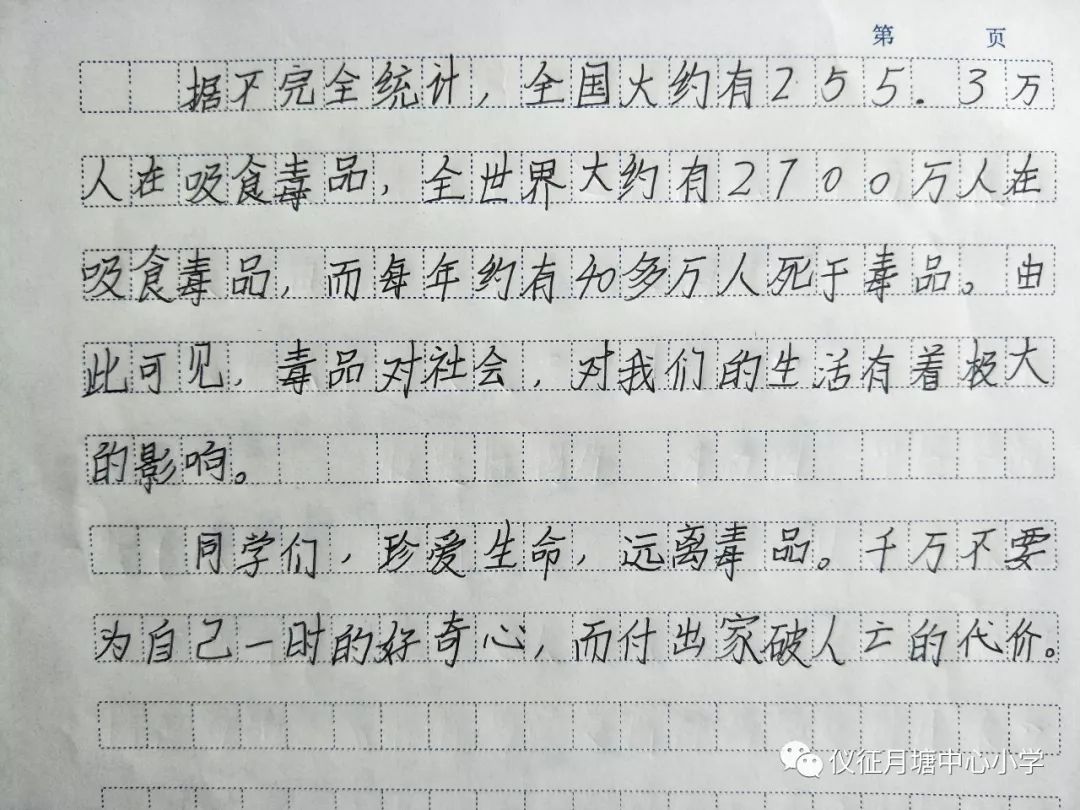 第 页
据不完全统计，全国大约有255.3万
人在吸食毒品，全世界大约有2700万人在
吸食毒品，而每年约有40多万人死于毒品。由
此可见，毒品对社会，对我们的生活有着极大
的影响。
同学们，珍爱生命，远离毒品。千万不要
为自己一时的好奇心，而付出家破人亡的代价。
仪征月塘中心小学